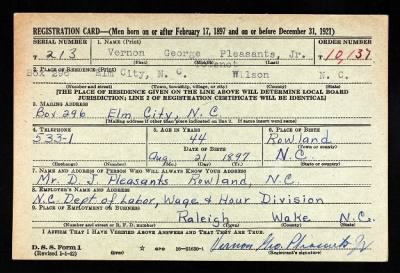 REGISTRATION CARD—(Men born on or after February 17, 1897 and on or before December 31, 1921)
SERIAL NUMBER 1. NAME (Print) ORDER NUMBER
T 213 Vernon George Pleasants, Jr. T 10,137
2. PLACE OF RESIDENCE (Print)
Box 296 Elm City, N. C. Wilson N. C.
(Number and street) (Town, township, village, or city) (County) (State)
[THE PLACE OF RESIDENCE GIVEN ON THE LINE ABOVE WILL DETERMINE LOCAL BOARD
JURISDICTION; LINE 2 OF REGISTRATION CERTIFICATE WILL BE IDENTICAL]
3. MAILING ADDRESS
Box 296 Elm City, N.C.
[Mailing address if other than place indicated on line 2. If same insert word same]
4. TELEPHONE 5. AGE IN YEARS 6. PLACE OF BIRTH
333-1 44 Rowland
DATE OF BIRTH (Town or county)
Aug 21 1897 N.C.
(Exchange) (Number) (Mo.) (Day) (Yr.) (State or country)
7. NAME AND ADDRESS OF PERSON WHO WILL ALWAYS KNOW YOUR ADDRESS
Mr. D. J. Pleasants Rowland, N.C.
8. EMPLOYER'S NAME AND ADDRESS
N.C. Dept of Labor, Wage & Hour Division
9. PLACE OF EMPLOYMENT OR BUSINESS
Raleigh Wake N.C.
(Number and street or R. F. D. number) (Town) (County) (State)
I AFFIRM THAT I HAVE VERIFIED ABOVE ANSWERS AND THAT THEY ARE TRUE.
D. S. S. Form 1 16—21630-1 Vernon Geo. Pleasants Jr
(over) (Registrant's signature)